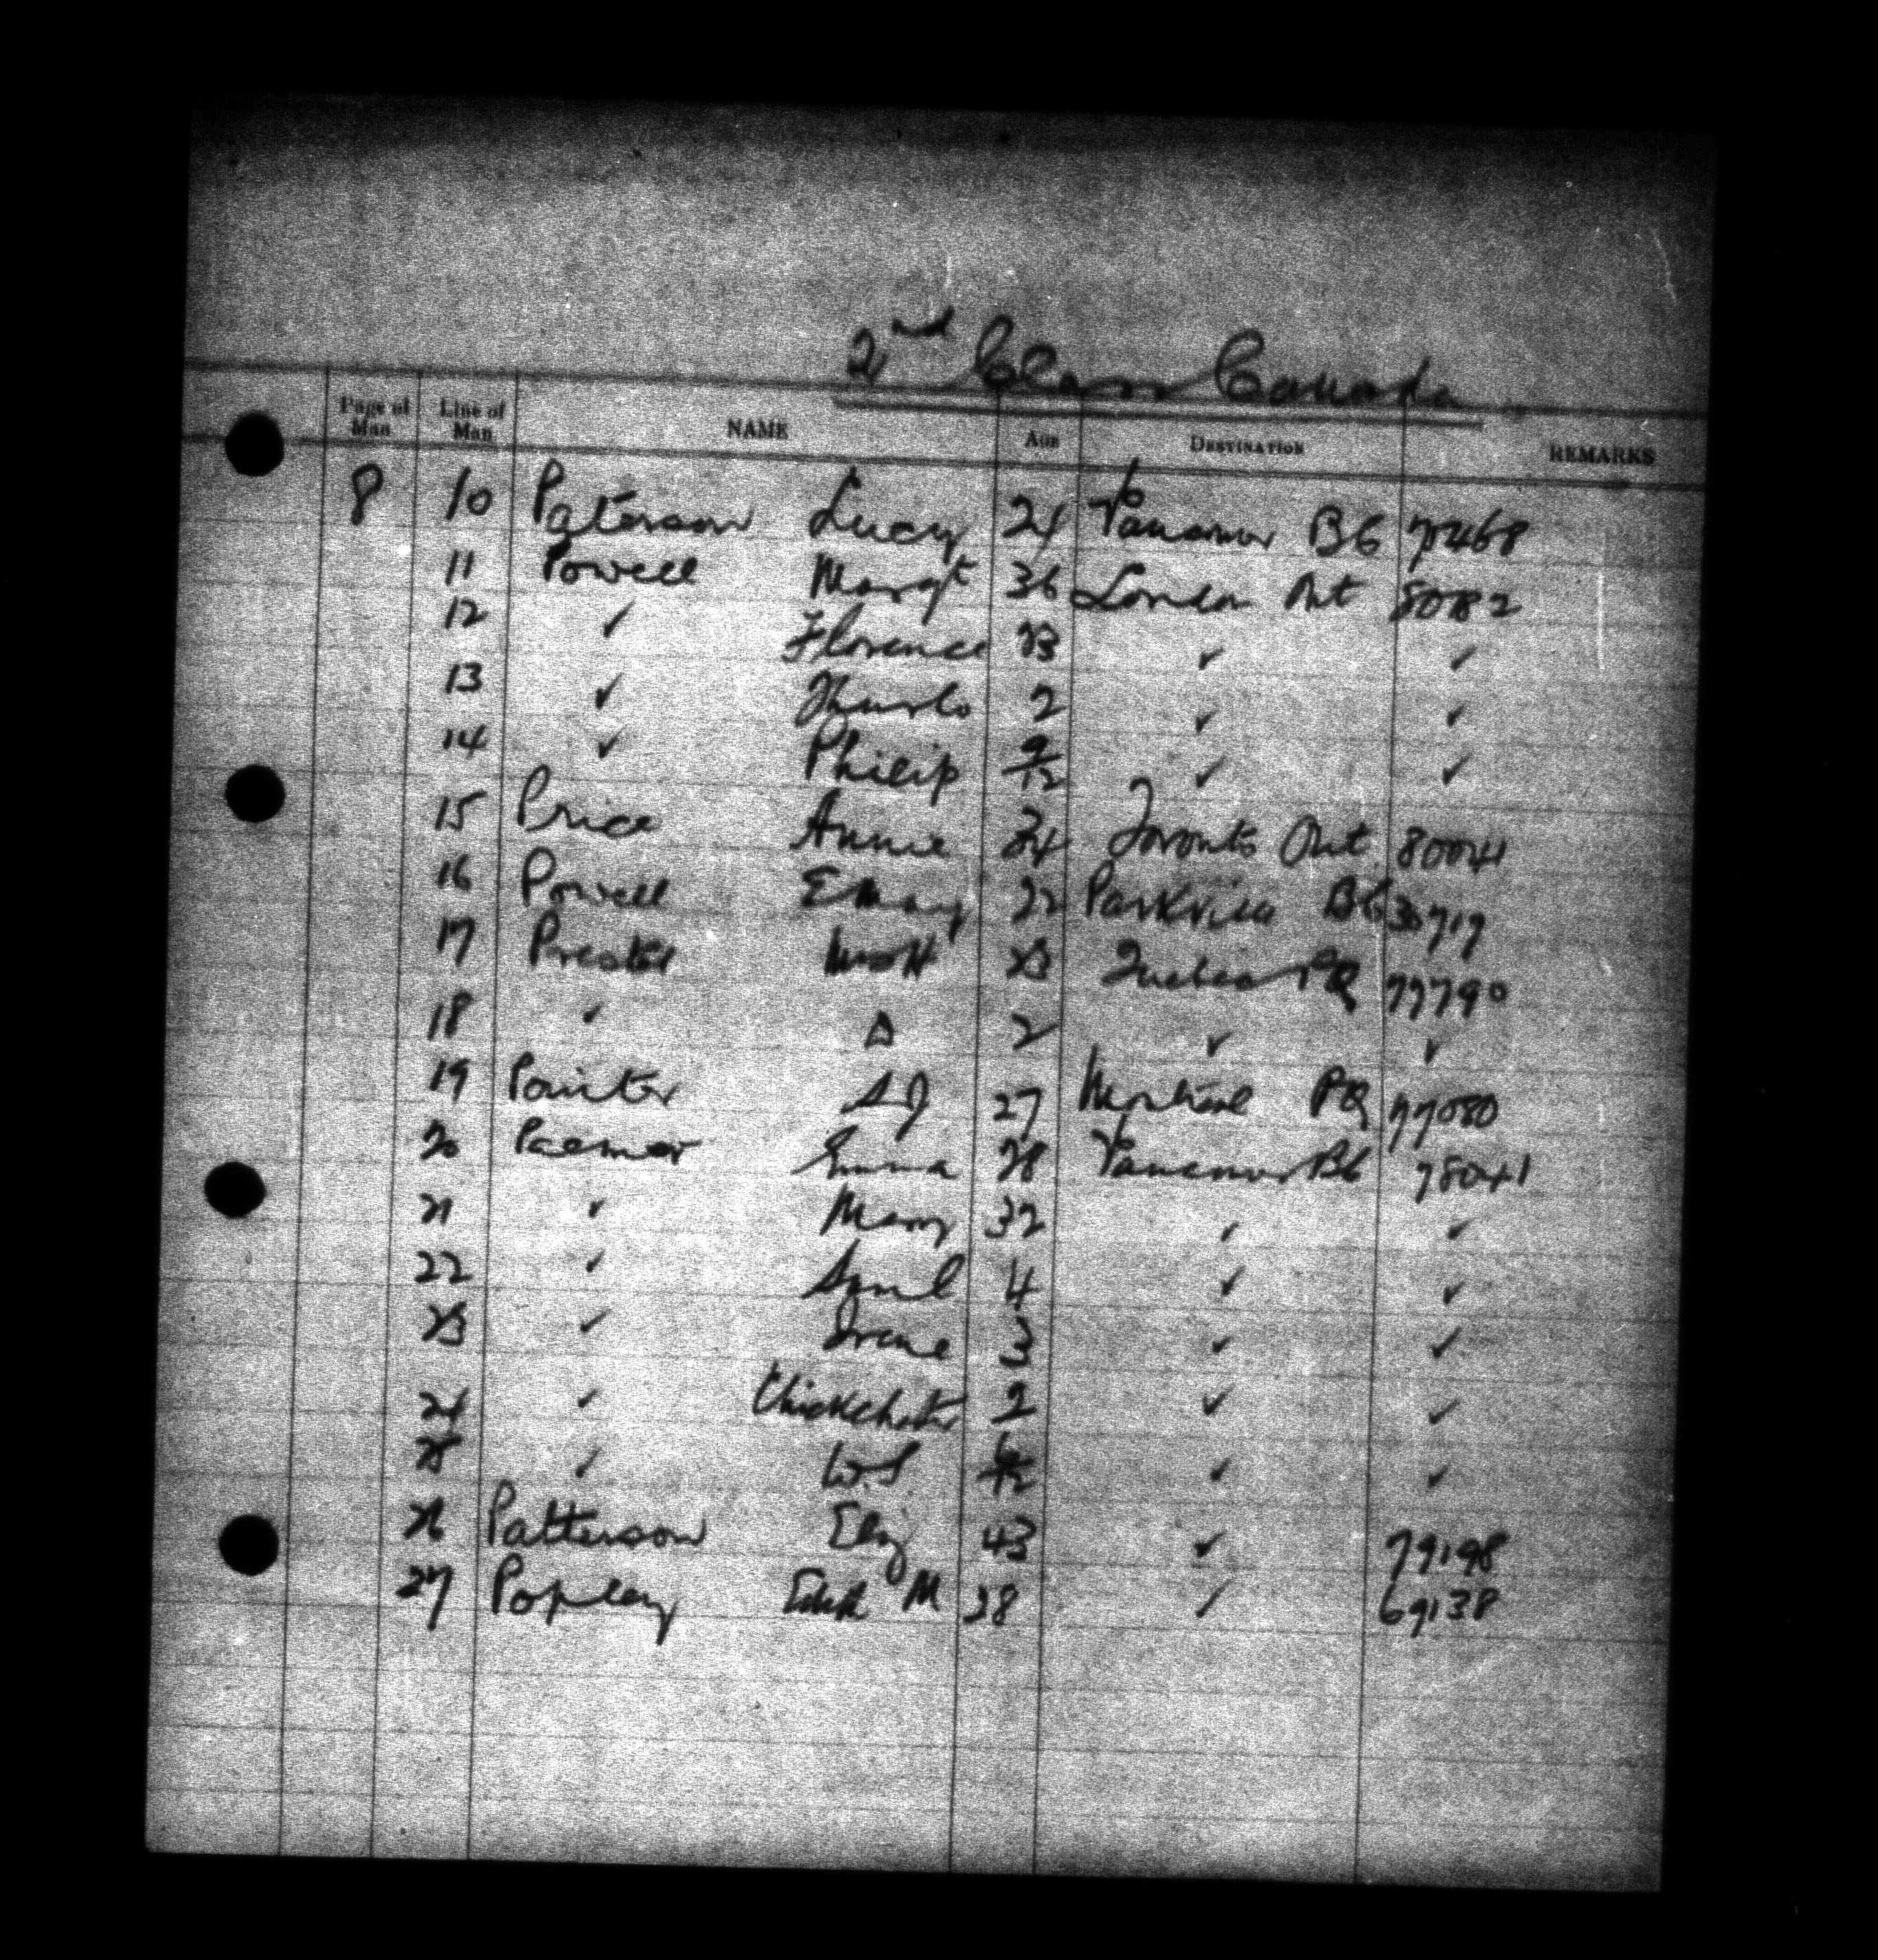 2nd Class Canada
Page of Man Line of Man NAME AGE DESTINATION REMARKS
8 10 Paterson Lucy 24 Vancouver BC 77468
11 Powell Margt 36 London Ont 80182
12 ✓ Florence 23 ✓ ✓
13 ✓ 2 ✓ ✓
14 ✓ Philip 9/12 ✓ ✓
15 Price Annie 34 Toronto Ont 80041
16 Powell E May 22 Parkville BC 30717
17 Preston Mrs H 23 Quebec PQ 77790
18 ✓ D 2 ✓ ✓
19 Painter A J 27 Montreal PQ 77080
20 Palmer Emma 28 Vancouver BC 78041
21 ✓ Mary 32 ✓ ✓
22 ✓ April 4 ✓ ✓
23 ✓ Irene 3 ✓ ✓
24 ✓ Chickchester 2 ✓ ✓
25 ✓ W.S. 6/12 ✓ ✓
26 Patterson Eliz 43 ✓ 79198
27 Popley Edith M 28 ✓ 69138